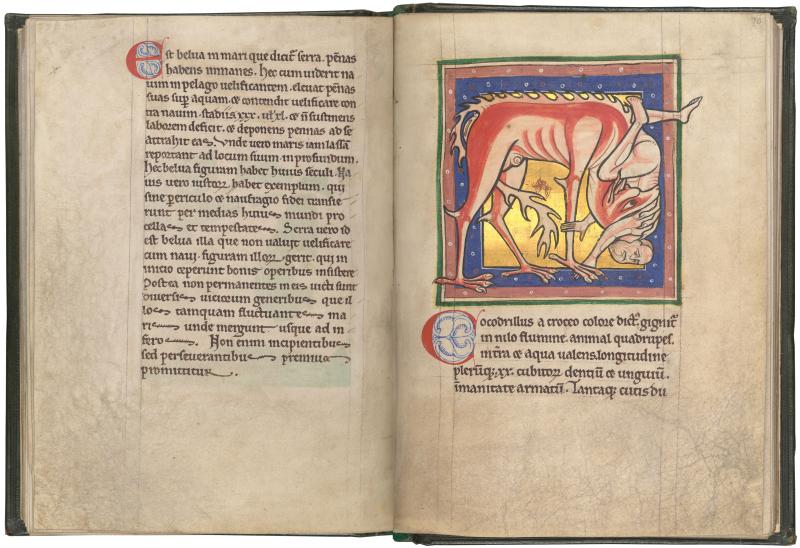 Est belua in mari que dicit᷑ serra. pēnas
habens inmanes. Hec cum uiderit na
uim in pelago uelificantem. eleuat pēnas
suas sup̄ aquam. ⁊ contendit uelificare con
tra nauim. stadiis xxx.
laborem deficit. ⁊ deponens pennas ad se
attrahit eas. Vnde uero maris iam lassā
reportant ad locum suum in profundum.
Hec belua figuram habet huius seculi. Na
uis uero iustoꝝ habet exemplum. qui
sine periculo ⁊ naufragio fidei transie
runt per medias huius mundi pro
cellas et tempestates. Serra uero id
est belua illa que non ualuit uelificare
cum naui. figuram illoꝝ gerit. qui in
inicio ceperunt bonis operibus insistere
Postea non permanentes in eis uicti sunt
diuersis uicioꝝ generibus que il
los tamquam fluctuantes ma
ris unde mergunt usque ad in
feros. Non enim incipientibus
sed perseuerantibus premiū
promittitur.
Cocodrillus a croceo colore dict᷑. gignit᷑
in nilo flumine. animal quadrupes.
in t̄ra ⁊ aqua ualens. longitudine
plerūq; xx. cubitoꝝ. dentiū ⁊ unguiū.
īmanitate armatū. Tantaq; cutis du